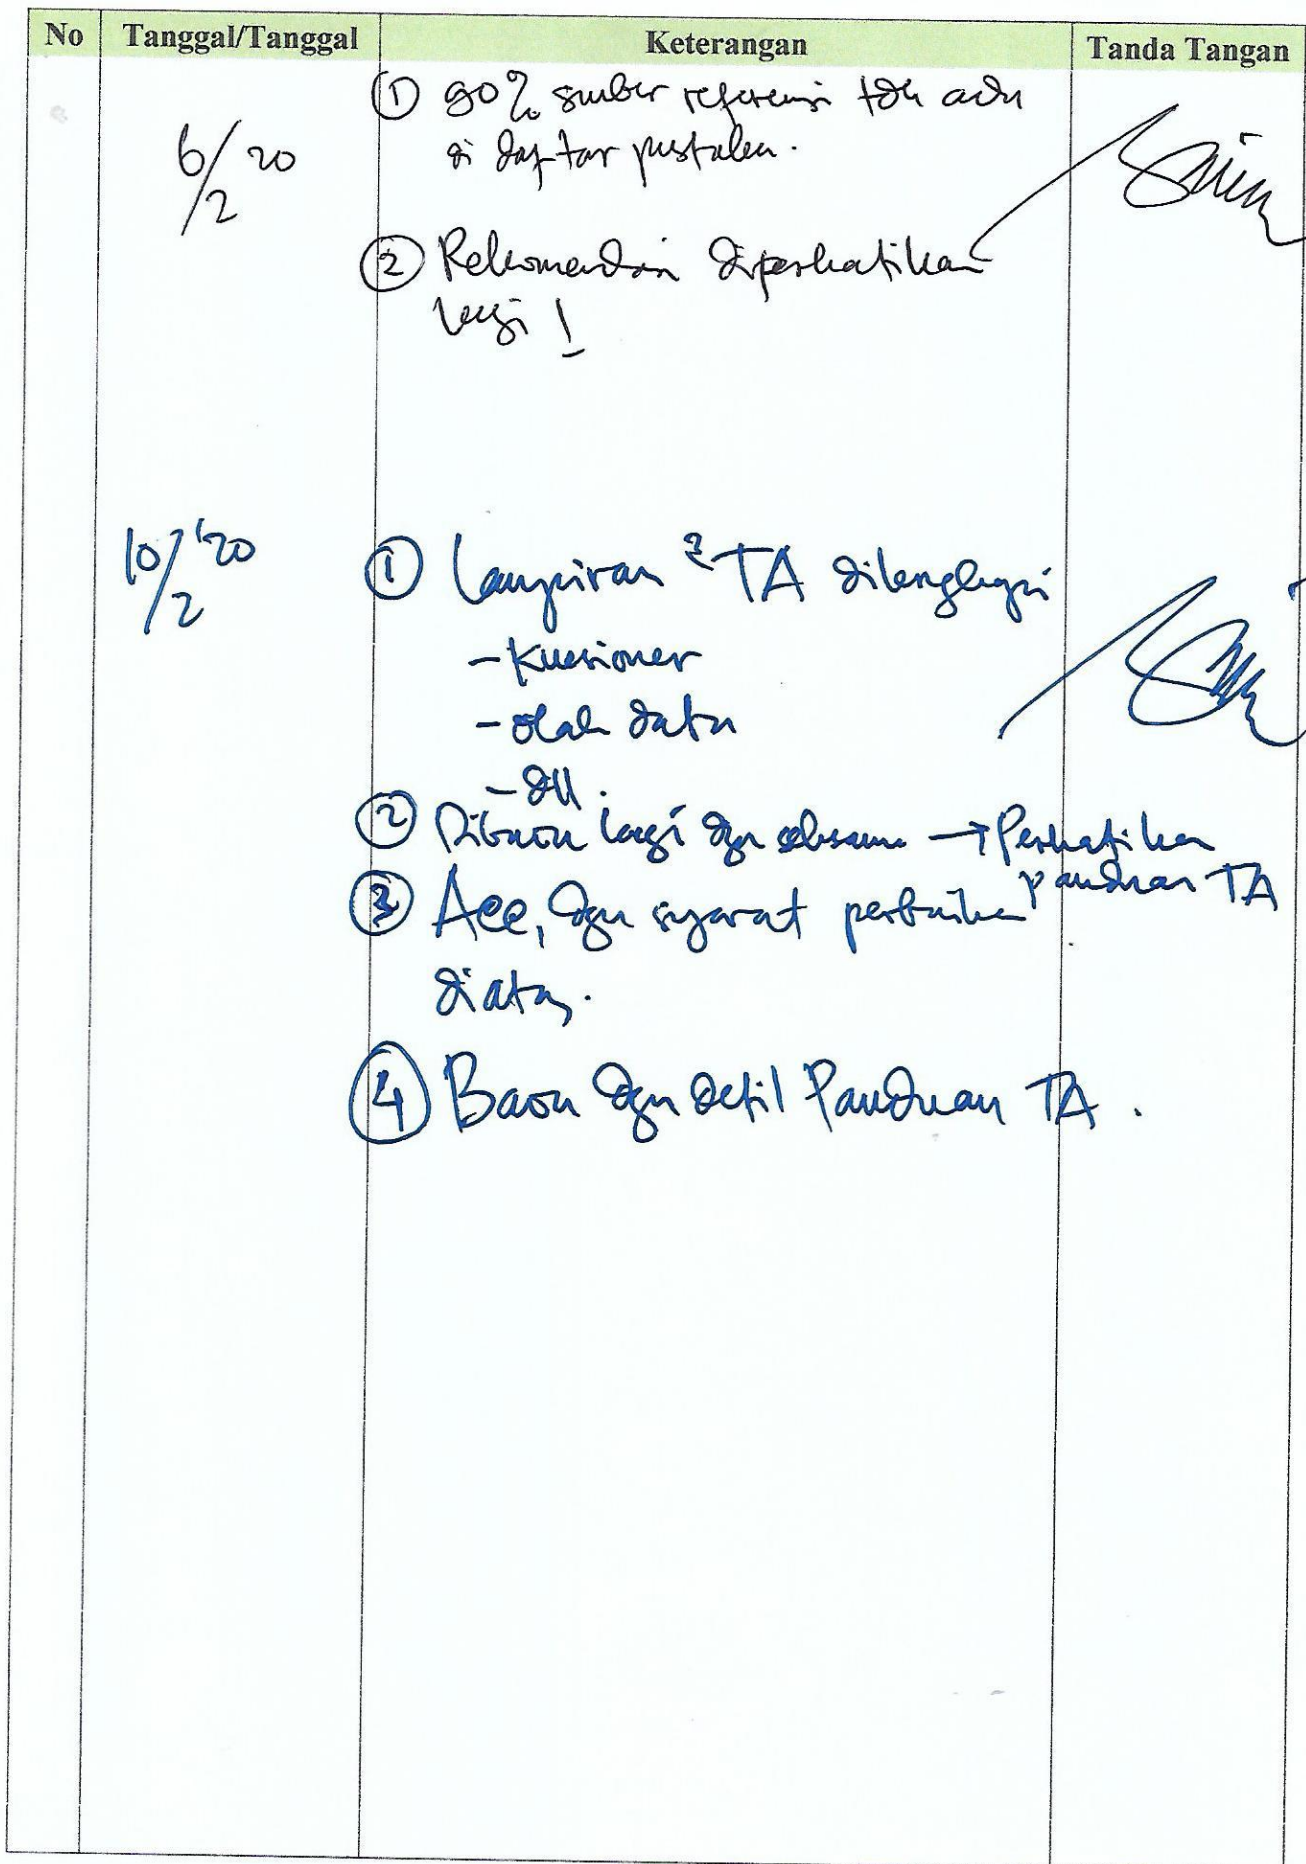 No Tanggal/Tanggal Keterangan Tanda Tangan
6/2 20
① 90% sumber referensi tdk ada
di daftar pustaka.
② Rekomendasi diperhatikan
lagi !
10/2 '20
① Lampiran ² TA dilengkapi
- Kuesioner
- olah data
- dll.
② Dibaca lagi dgn seksama → Perhatikan
panduan TA
③ Acc, dgn syarat perbaikan
diatas.
④ Baca dgn detil Panduan TA.